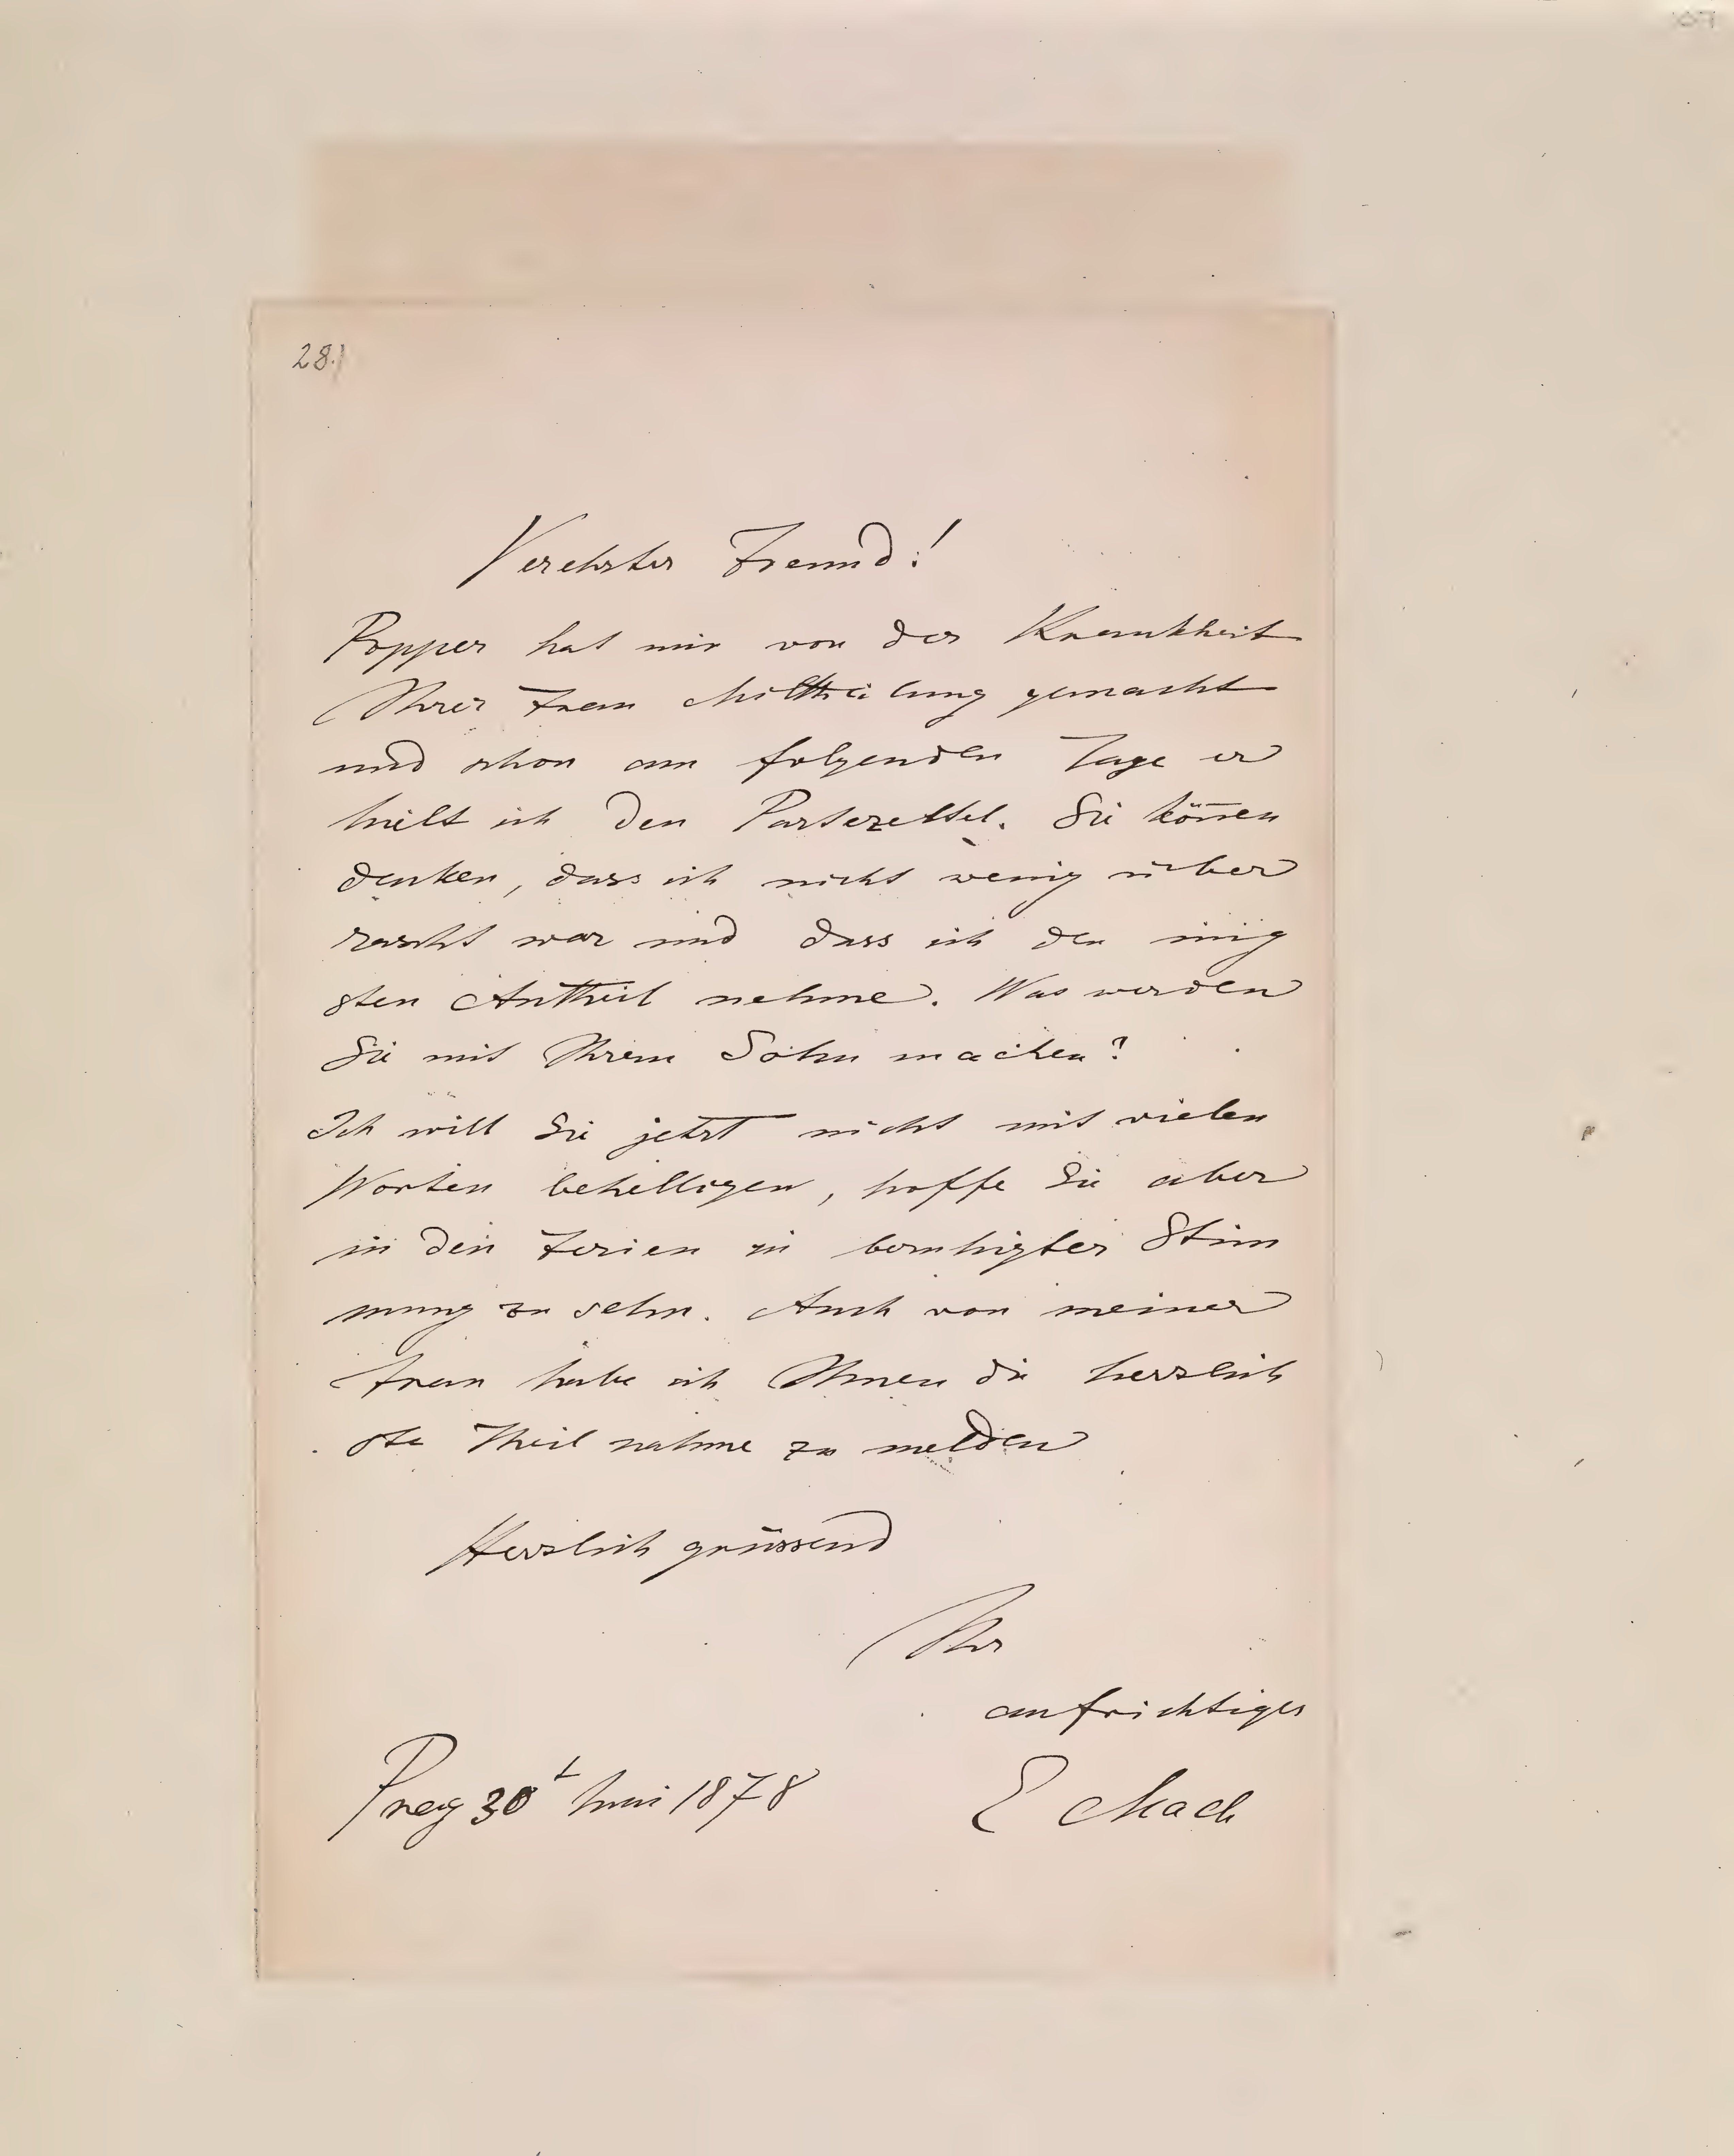 28.)
Verehrter Freund!
Popper hat mir von der Krankheit
Ihrer Frau Mittheilung gemacht
und schon am folgenden Tage er
hielt ich den Partezettel. Sie kön̄en
denken, dass ich nicht wenig über
rascht war und dass ich den innig
sten Antheil nehme. Was werden
Sie mit Ihrem Sohn machen?
Ich will Sie jetzt nicht mit vielen
Worten behelligen, hoffe Sie aber
in den Ferien in beruhigter Stim
mung zu sehn. Auch von meiner
Frau habe ich Ihnen die herzlich
ste Theilnahme zu melden
Herzlich grüssend
Ihr
aufrichtiger
Prag 30t 1878 E Mach